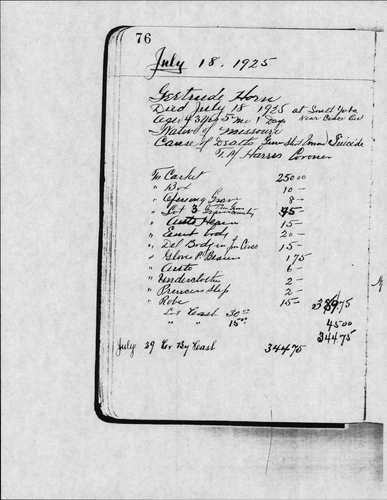 76
July 18, 1925
Gertrude Horn
Died July 18 1925 at South Yuba
Near Cedar
Age 43 yrs 5 Mo 1 Days
Native of Missouri
Cause of Death Gun Shot Suicide
Harris Coroner
To Casket 250 00
" Box 10 -
" Opening Grave 8 -
" Lot 3 75 -
" Auto Hearse 15 -
" Emb body 20 -
" Del Body in 15 -
" Gloves P. Bearers 1 75
" Auto 6 -
" Underclothes 2 -
" Princess Slip 2 -
" Robe 15 - 389 75
Lot Cash 30 00 45 00
" " 15 00 344 75
July 29 Cr By Cash 344 75